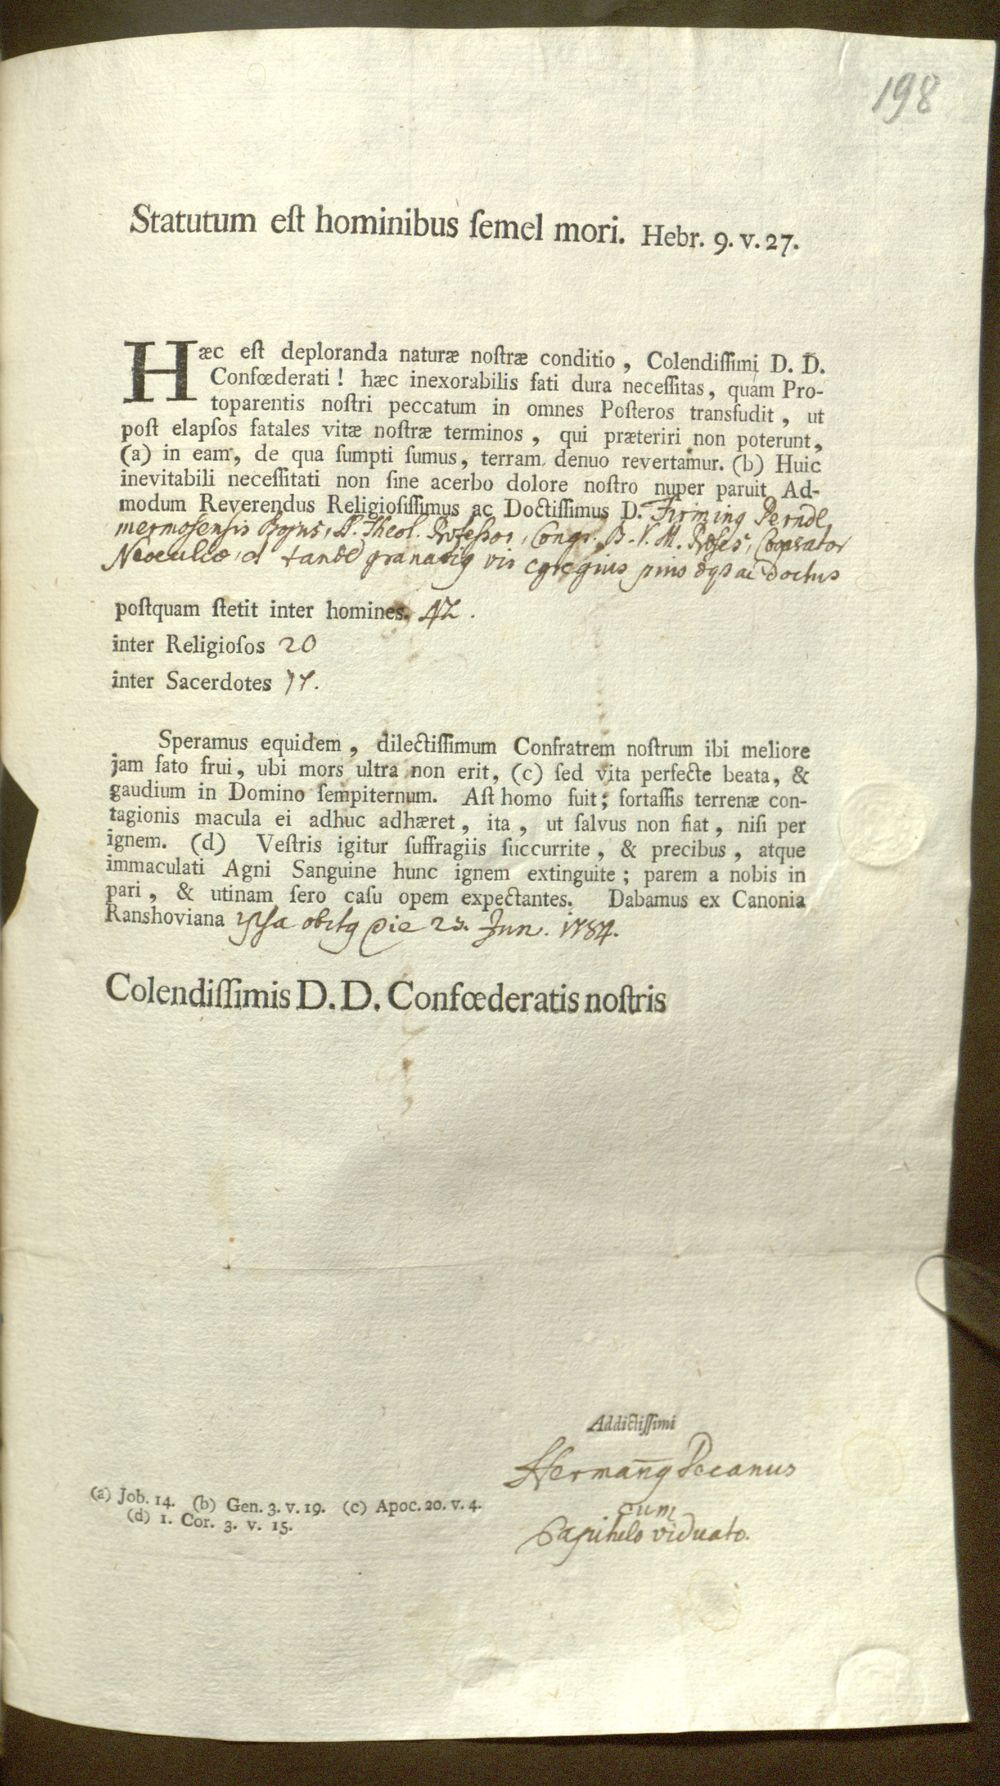 198
Statutum eſt hominibus ſemel mori. Hebr. 9. v. 27.
Hæc eſt deploranda naturæ noſtræ conditio, Colendiſſimi D. D.
Confœderati! hæc inexorabilis fati dura neceſſitas, quam Pro-
toparentis noſtri peccatum in omnes Poſteros transfudit, ut
poſt elapſos fatales vitæ noſtræ terminos, qui præteriri non poterunt,
(a) in eam, de qua ſumpti ſumus, terram denuo revertamur. (b) Huic
inevitabili neceſſitati non ſine acerbo dolore noſtro nuper paruit Ad-
modum Reverendus Religioſiſſimus ac Doctiſſimus D. Firming Perndl
mermosensis Bojus, S. Theol. Professor, Congr. B. V. M. Præses, Cooperator
Neocellæ, et granarius vir egregius pius ac doctus
poſtquam ſtetit inter homines. 42.
inter Religioſos 20
inter Sacerdotes 17.
Speramus equidem, dilectiſſimum Confratrem noſtrum ibi meliore
jam fato frui, ubi mors ultra non erit, (c) ſed vita perfecte beata, &
gaudium in Domino ſempiternum. Aſt homo fuit; fortaſſis terrenæ con-
tagionis macula ei adhuc adhæret, ita, ut ſalvus non fiat, niſi per
ignem. (d) Veſtris igitur ſuffragiis ſuccurrite, & precibus, atque
immaculati Agni Sanguine hunc ignem extinguite; parem a nobis in
pari, & utinam ſero caſu opem expectantes. Dabamus ex Canonia
Ranshoviana ipsa obitg die 23. Jun. 1784.
Colendiſſimis D. D. Confœderatis noſtris
Addictiſſimi
Hermañg Decanus
cum
Capitulo viduato.
(a) Job. 14. (b) Gen. 3. v. 19. (c) Apoc. 20. v. 4.
(d) 1. Cor. 3. v. 15.